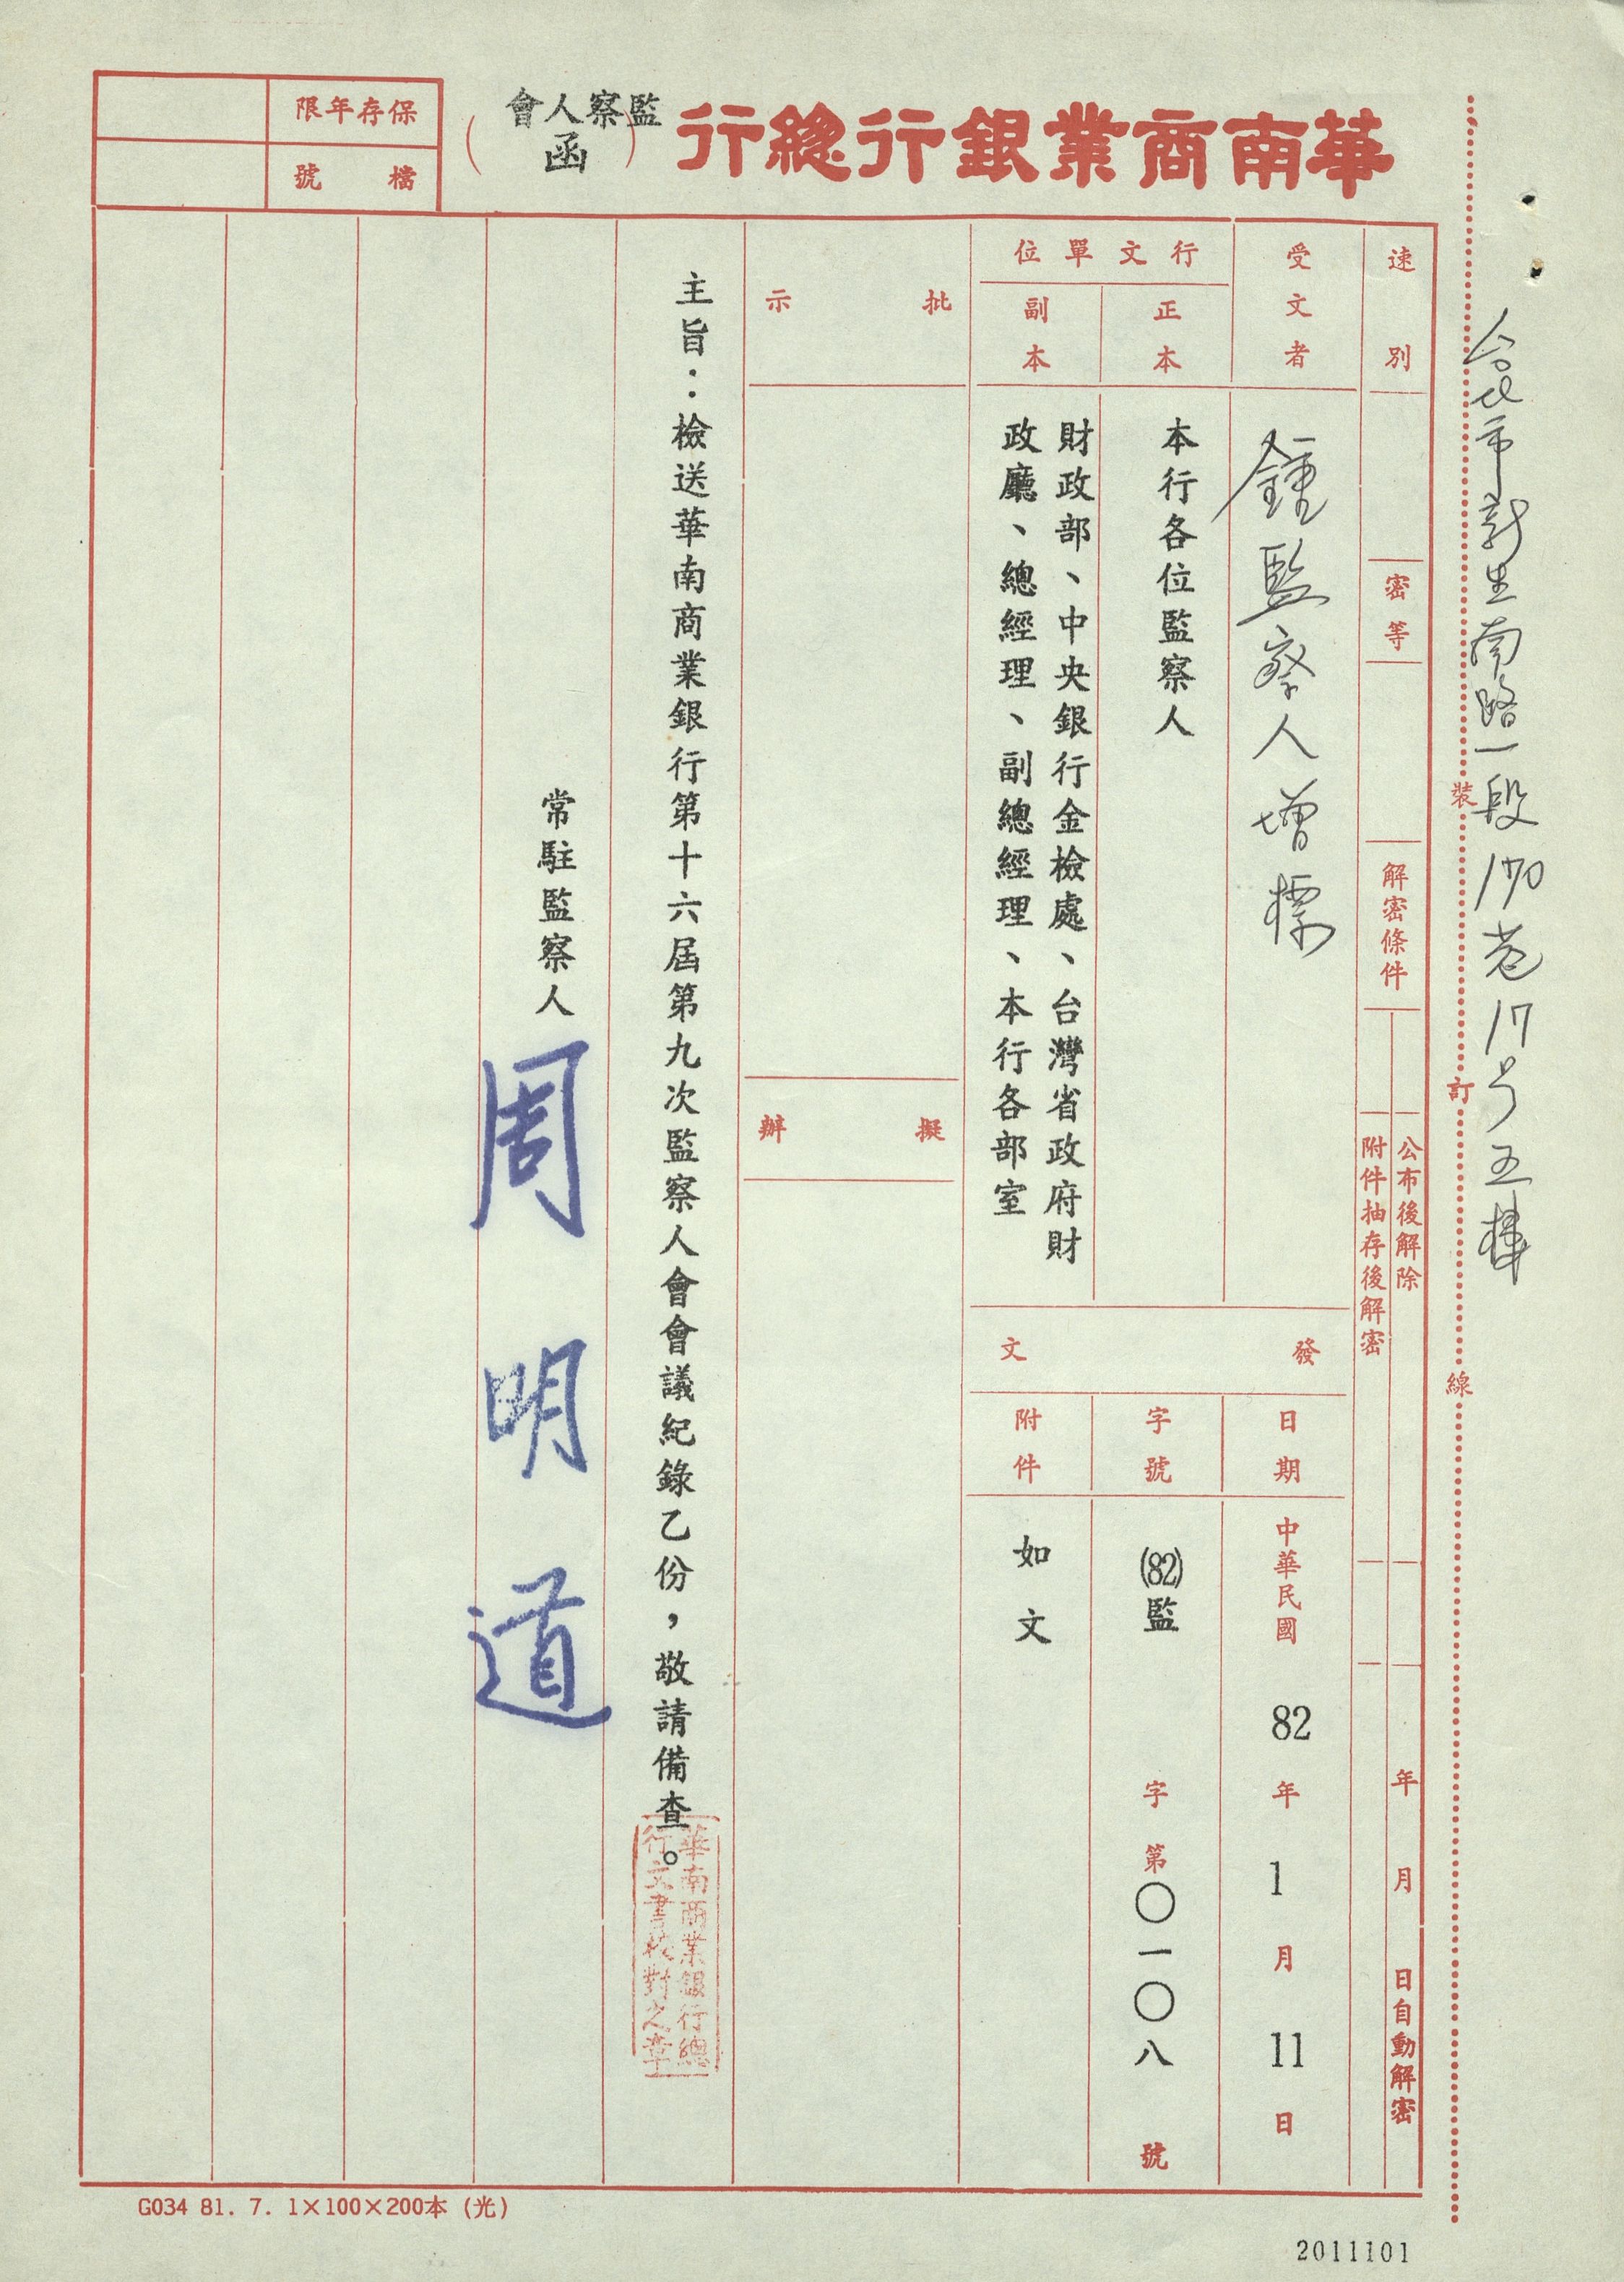 華南商業銀行總行
（監察人會函）
保存年限
檔號
台北市新生南路一段170巷17号五樓
裝
訂
線
速別
密等
解密條件
公布後解除
附件抽存後解密
年月日自動解密
受文者
鍾監察人增標
行文單位
正本
本行各位監察人
副本
財政部、中央銀行金檢處、台灣省政府財
政廳、總經理、副總經理、本行各部室
發文
日期
中華民國82年1月11日
字號
(82)監字第〇一〇八號
附件
如文
批示
擬辦
主旨：檢送華南商業銀行第十六屆第九次監察人會會議紀錄乙份，敬請備查。
華南商業銀行總
行文書校對之章
常駐監察人周明道
G034 81. 7. 1×100×200本 (光)
2011101